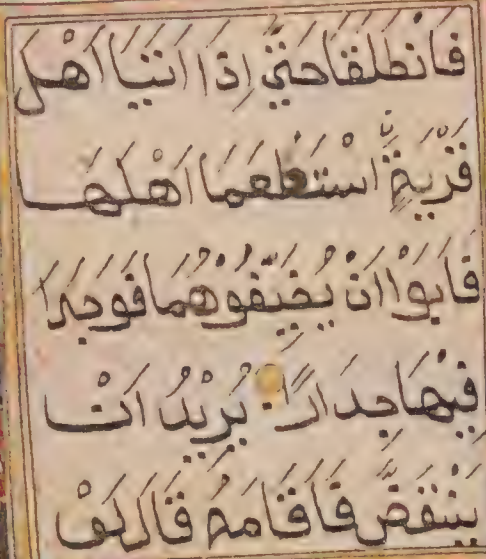 فَانْطَلَقَا حَتَّىٰ إِذَا أَتَيَا أَهْلَ
قَرْيَةٍ اسْتَطْعَمَا أَهْلَهَا
فَأَبَوْا أَنْ يُضَيِّفُوهُمَا فَوَجَدَا
فِيهَا جِدَارًا يُرِيْدُ اَنْ
يَنْقَضَّ فَأَقَامَهُ قَالَ لَوْ